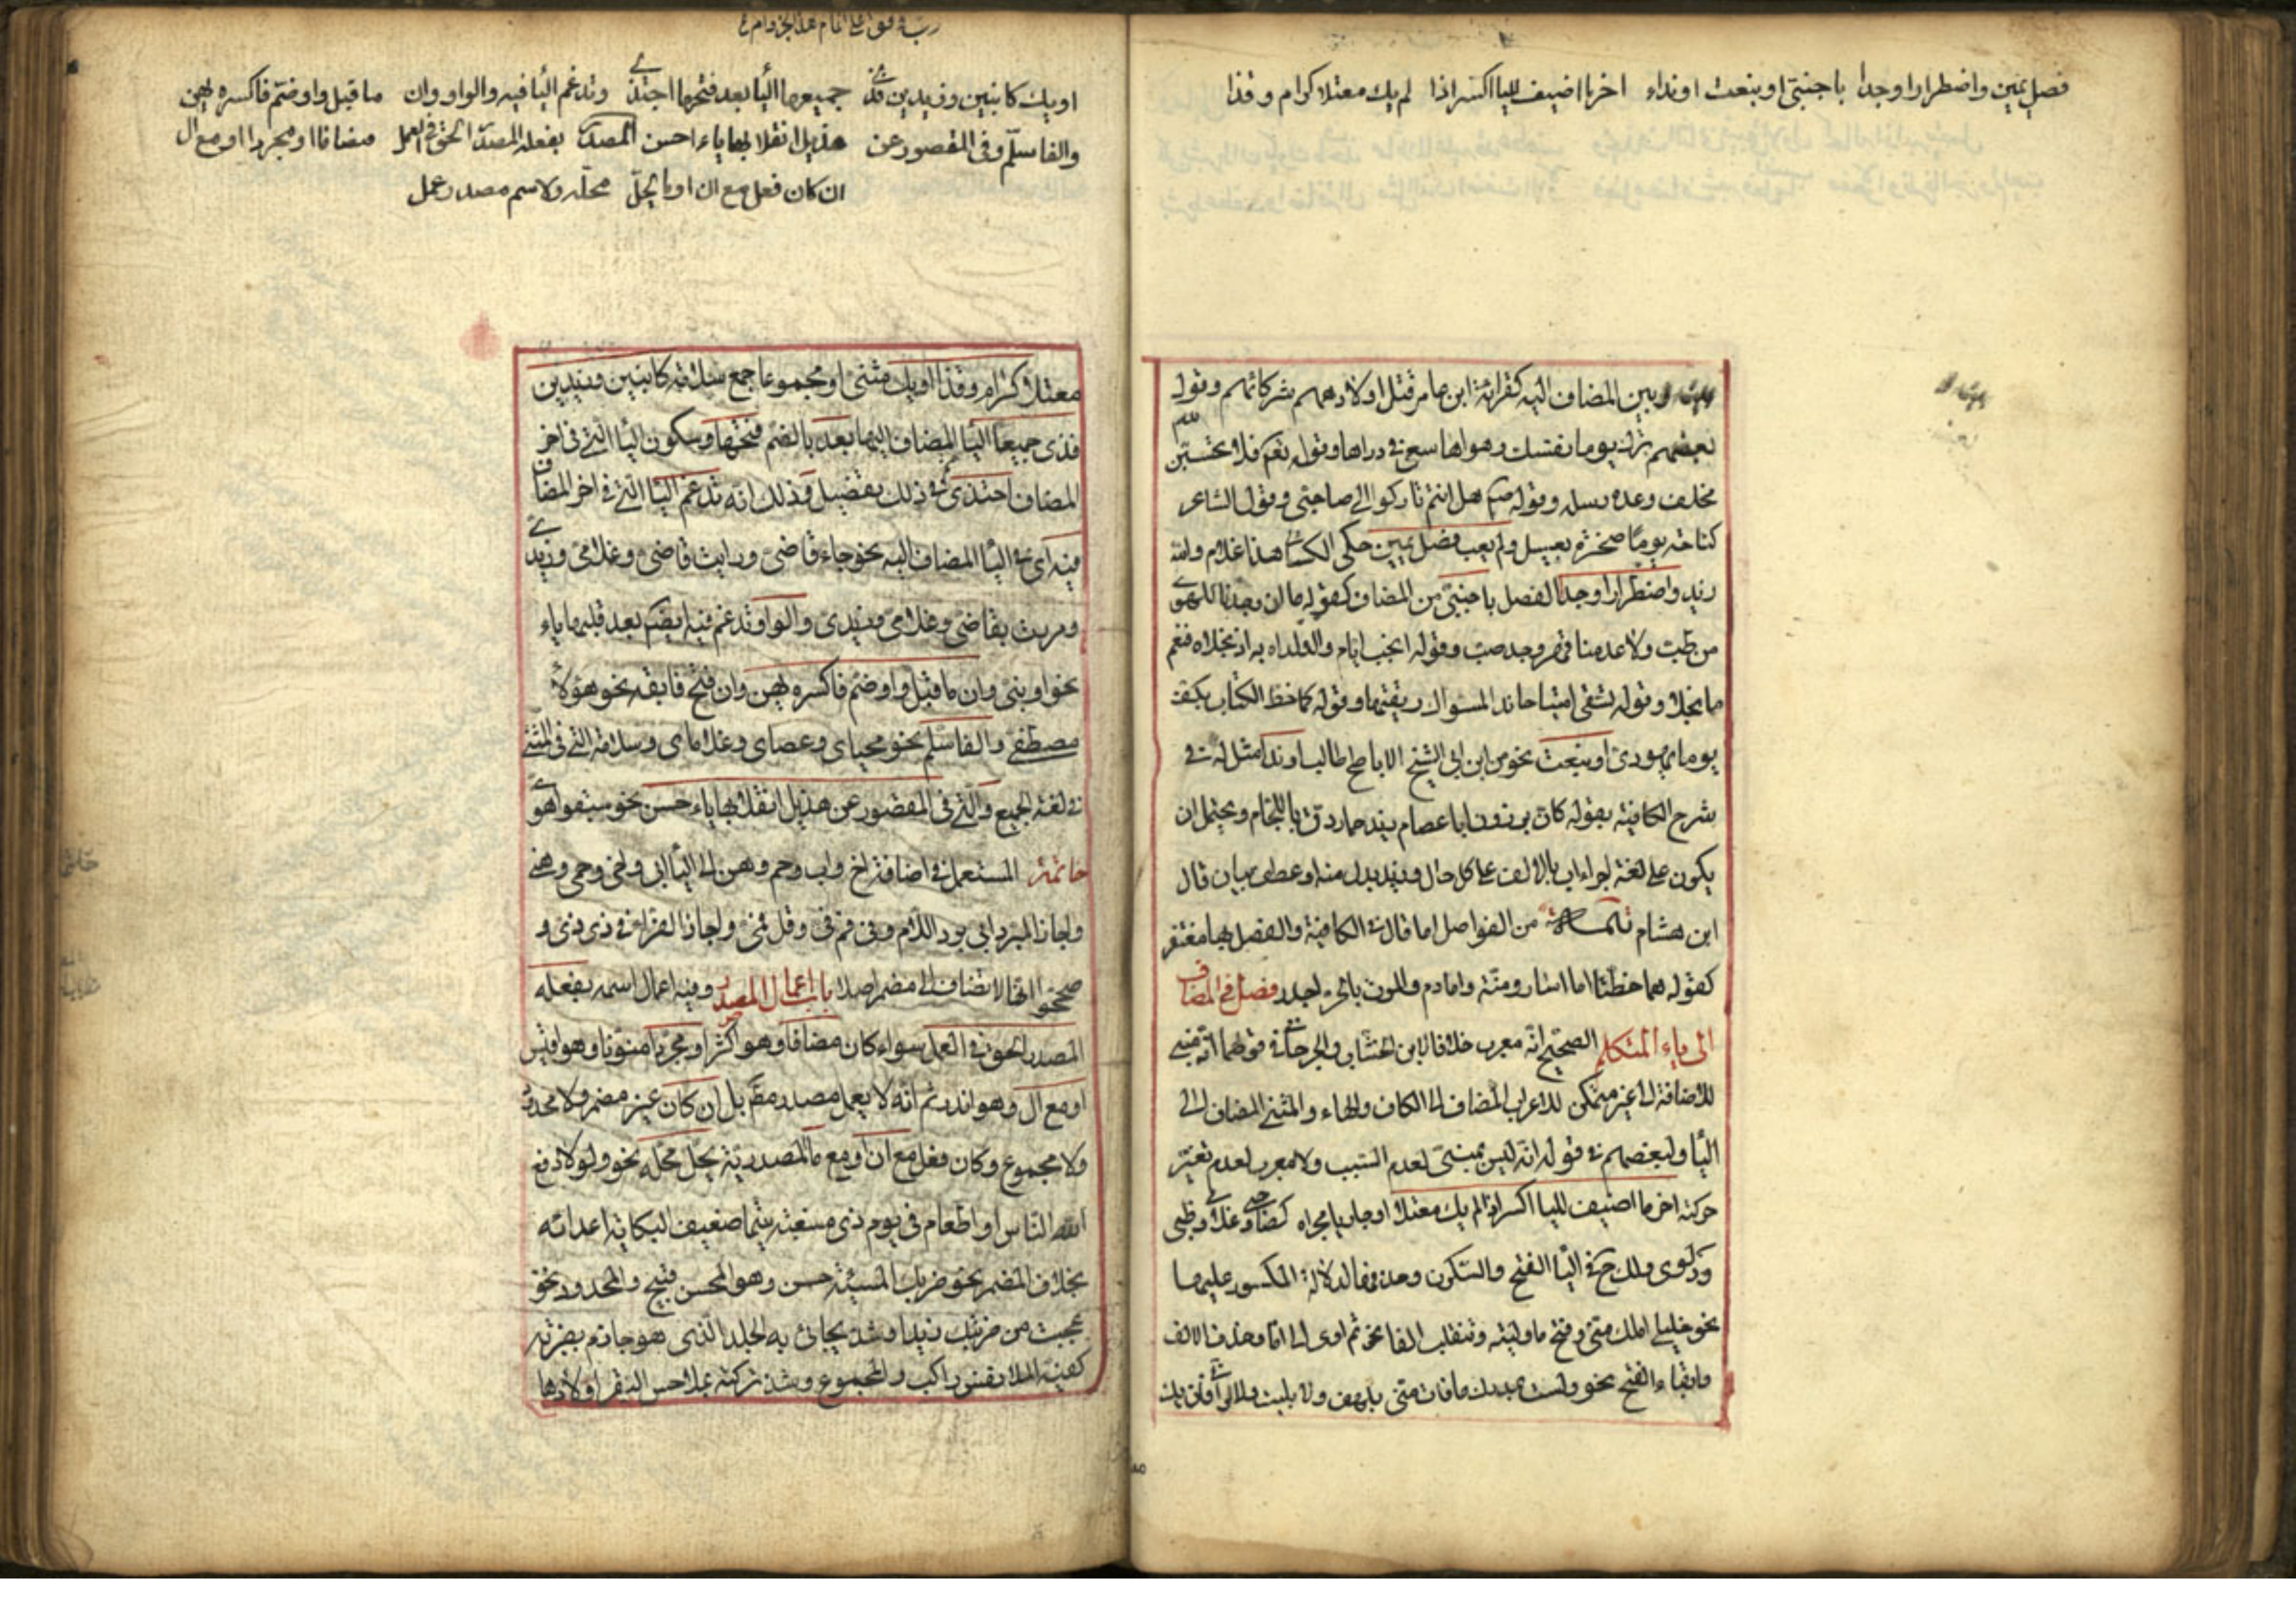 فصل يمين واضطرارا وجدا باجنبي او بنعت او نداء اخر ما اضيف لليا اكسر اذا لم يك معتلا كرام وقذا
وبين المضاف اليه كقراءة ابن عامر قتل اولادهم شركائهم وقول
بعضهم ترك يوما نفسك وهواها سعي في رداها وقوله نعم فلا تحسبن
مخلف وعده رسله وقوله صم هل انتم تاركوا لي صاحبي وقول الشاعر
كناحت يوما صخرة بعسيل ولم يعب فصل يمين حكى الكسائي هذا غلام والله
زيد واضطرارا وجدا الفصل باجنبي من المضاف كقوله ما ان وجدنا للهوى
من طب ولا عدمنا قهر وجد صب وقوله انجب ايام والداه به اذ نجلاه فنعم
ما نجلا وقوله تسقي امتياحا ندا المسواك ريقتها وقوله كما خط الكتاب بكف
يوما يهودي او بنعت نحو من ابن ابي الشيخ الاباطح طالب او ندا مثل له في
شرح الكافية بقوله كان برذون ابا عصام زيد حمار دق باللجام ويحتمل ان
يكون على لغة اجراء اب بالالف على كل حال وزيد بدل منه او عطف بيان قال
ابن هشام تتمة من الفواصل اما قال في الكافية والفصل بها مغتفر
كقوله هما خطتا اما اسار ومنة واما دم والموت بالحر اجدر فصل في المضاف
الى ياء المتكلم الصحيح انه معرب خلافا لابن الخشاب والجرجاني في قولهما انه مبني
للاضافة الى غير متمكن لاعراب المضاف الى الكاف والهاء والمثنى المضاف الى
اليا ولبعضهم في قوله انه ليس بمبني لعدم السبب ولا معرب لعدم تغير
حركته اخر ما اضيف لليا اكسر اذا لم يك معتلا او جاريا مجراه كصاحبي وغلامي وظبيي
ودلوي ولك ح في اليا الفتح والسكون وحذفها لدلالة المكسور عليها
نحو خليلي املك مني وفتح ما وليته وتنقلب الفا نحو ثم اوي الى اما وحذف الالف
وابقاء الفتح نحو ولست بمدرك ما فات مني بلهف ولا بليت ولا لواني فان يك
او يك كابنين وزيدين فذي جميعها اليا بعد فتحها احتذي وتدغم اليا فيه والواو وان ما قبل واو ضم فاكسره يهن
والفا سلم وفي المقصور عن هذيل انقلابها ياء احسن المصدر بفعله المصدر الحق في العمل مضافا او مجردا او مع ال
ان كان فعل مع ان او ما يحل محله ولاسم مصدر عمل
معتلا كرام وقذا او يك مثنى او مجموعا جمع سلامة كابنين وزيدين
فذي جميعا اليا المضاف اليها بعد بالضم فتحها وسكون اليا التي في اخر
المضاف احتذي ثم في ذلك تفصيل وذلك انه تدغم اليا التي في اخر المضاف
فيه اي في اليا المضاف اليه نحو جاء قاضي ورايت قاضي وغلامي وزيدي
ومررت بقاضي وغلامي وزيدي والواو تدغم فيه ايضا بعد قلبها ياء
نحو اودى بني وان ما قبل واو ضم فاكسره يهن وان فتح فابقه نحو هؤلاء
مصطفي والفا سلم نحو محياي وعصاي وغلاماي وسلامة التي في المثنى
في لغة الجميع والتي في المقصور عن هذيل انقلابها ياء حسن نحو سبقوا هوي
خاتمة المستعمل في اضافة اخ واب وحم وهن الى اليا ابي واخي وحمي وهني
واجاز المبرد ابي برد اللام وفي فم في وقل فمي واجاز الفراء في ذي ذي و
صححوا انها لا تضاف الى مضمر اصلا باب اعمال المصدر وفيه اعمال اسمه بفعله
المصدر الحق في العمل سواء كان مضافا وهو اكثر او مجردا منونا وهو اقيس
او مع ال وهو اندر ثم انه لا يعمل مصدر مط بل ان كان غير مضمر ولا محدود
ولا مجموع وكان فعل مع ان او مع ما المصدرية يحل محله نحو ولولا دفع
الله الناس او اطعام في يوم ذي مسغبة يتيما ضعيف النكاية اعدائه
بخلاف المضمر نحو ضربك المسيئ حسن وهو المحسن قبيح والمحدود نحو
عجبت من ضربتك زيدا وشذ يحايي به الجلد الذي هو حازم بضربة
كفيه الملا نفس راكب والمجموع وشذ تركته بملاحس البقر اولادها